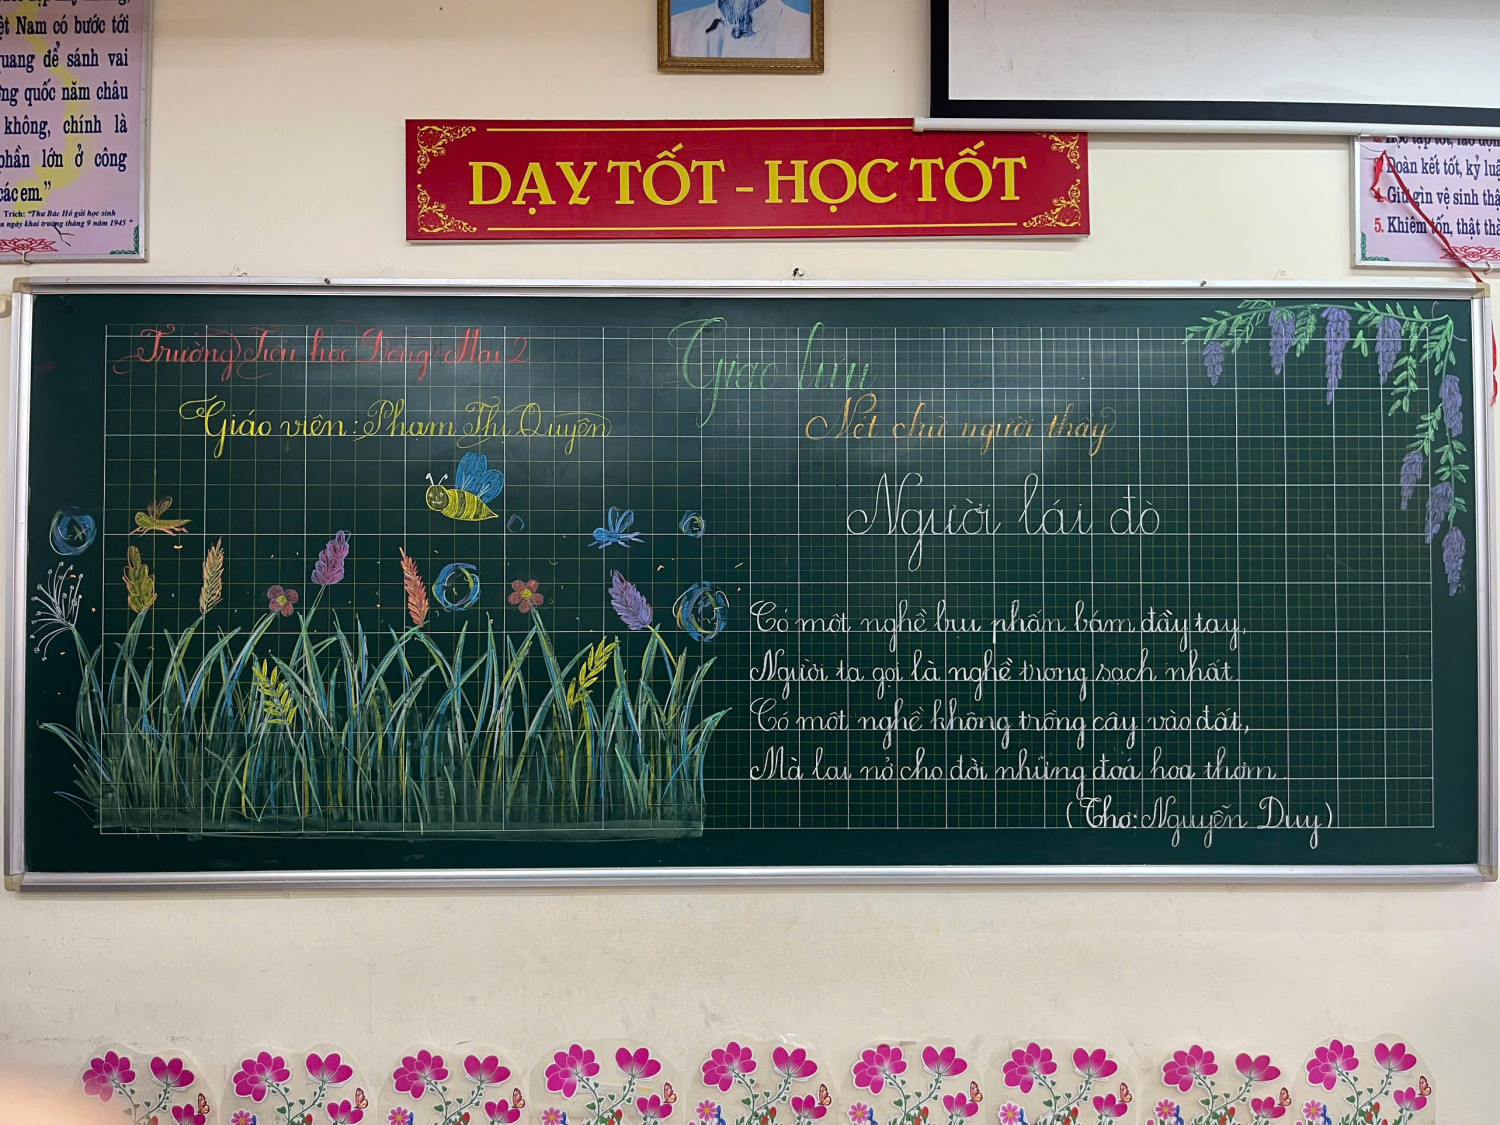 ệt Nam có bước tới
quang để sánh vai
ờng quốc năm châu
không, chính là
phần lớn ở công
các em."
Trích: "Thư Bác Hồ gửi học sinh
n ngày khai trường tháng 9 năm 1945"
DẠY TỐT - HỌC TỐT
Đoàn kết tốt, kỷ luậ
4. Giữ gìn vệ sinh thậ
5. Khiêm tốn, thật thà
Trường Tiểu học Đồng Mai 2
Giáo viên: Phạm Thị Quyên
Giao lưu
Nét chữ người thầy
Người lái đò
Có một nghề bụi phấn bám đầy tay,
Người ta gọi là nghề trong sạch nhất
Có một nghề không trồng cây vào đất,
Mà lại nở cho đời những đoá hoa thơm.
(Thơ: Nguyễn Duy)